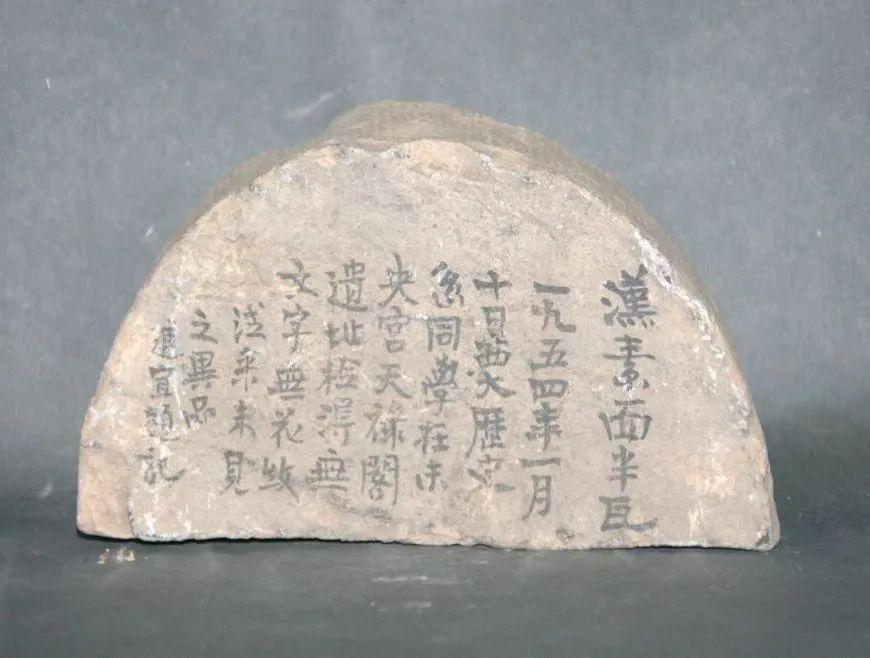 漢素面半瓦
一九五四年一月
十日西大歷史
系同學在未
央宮天祿閣
遺址檢得無
文字無花紋
從來未見
之異品
陳直題記